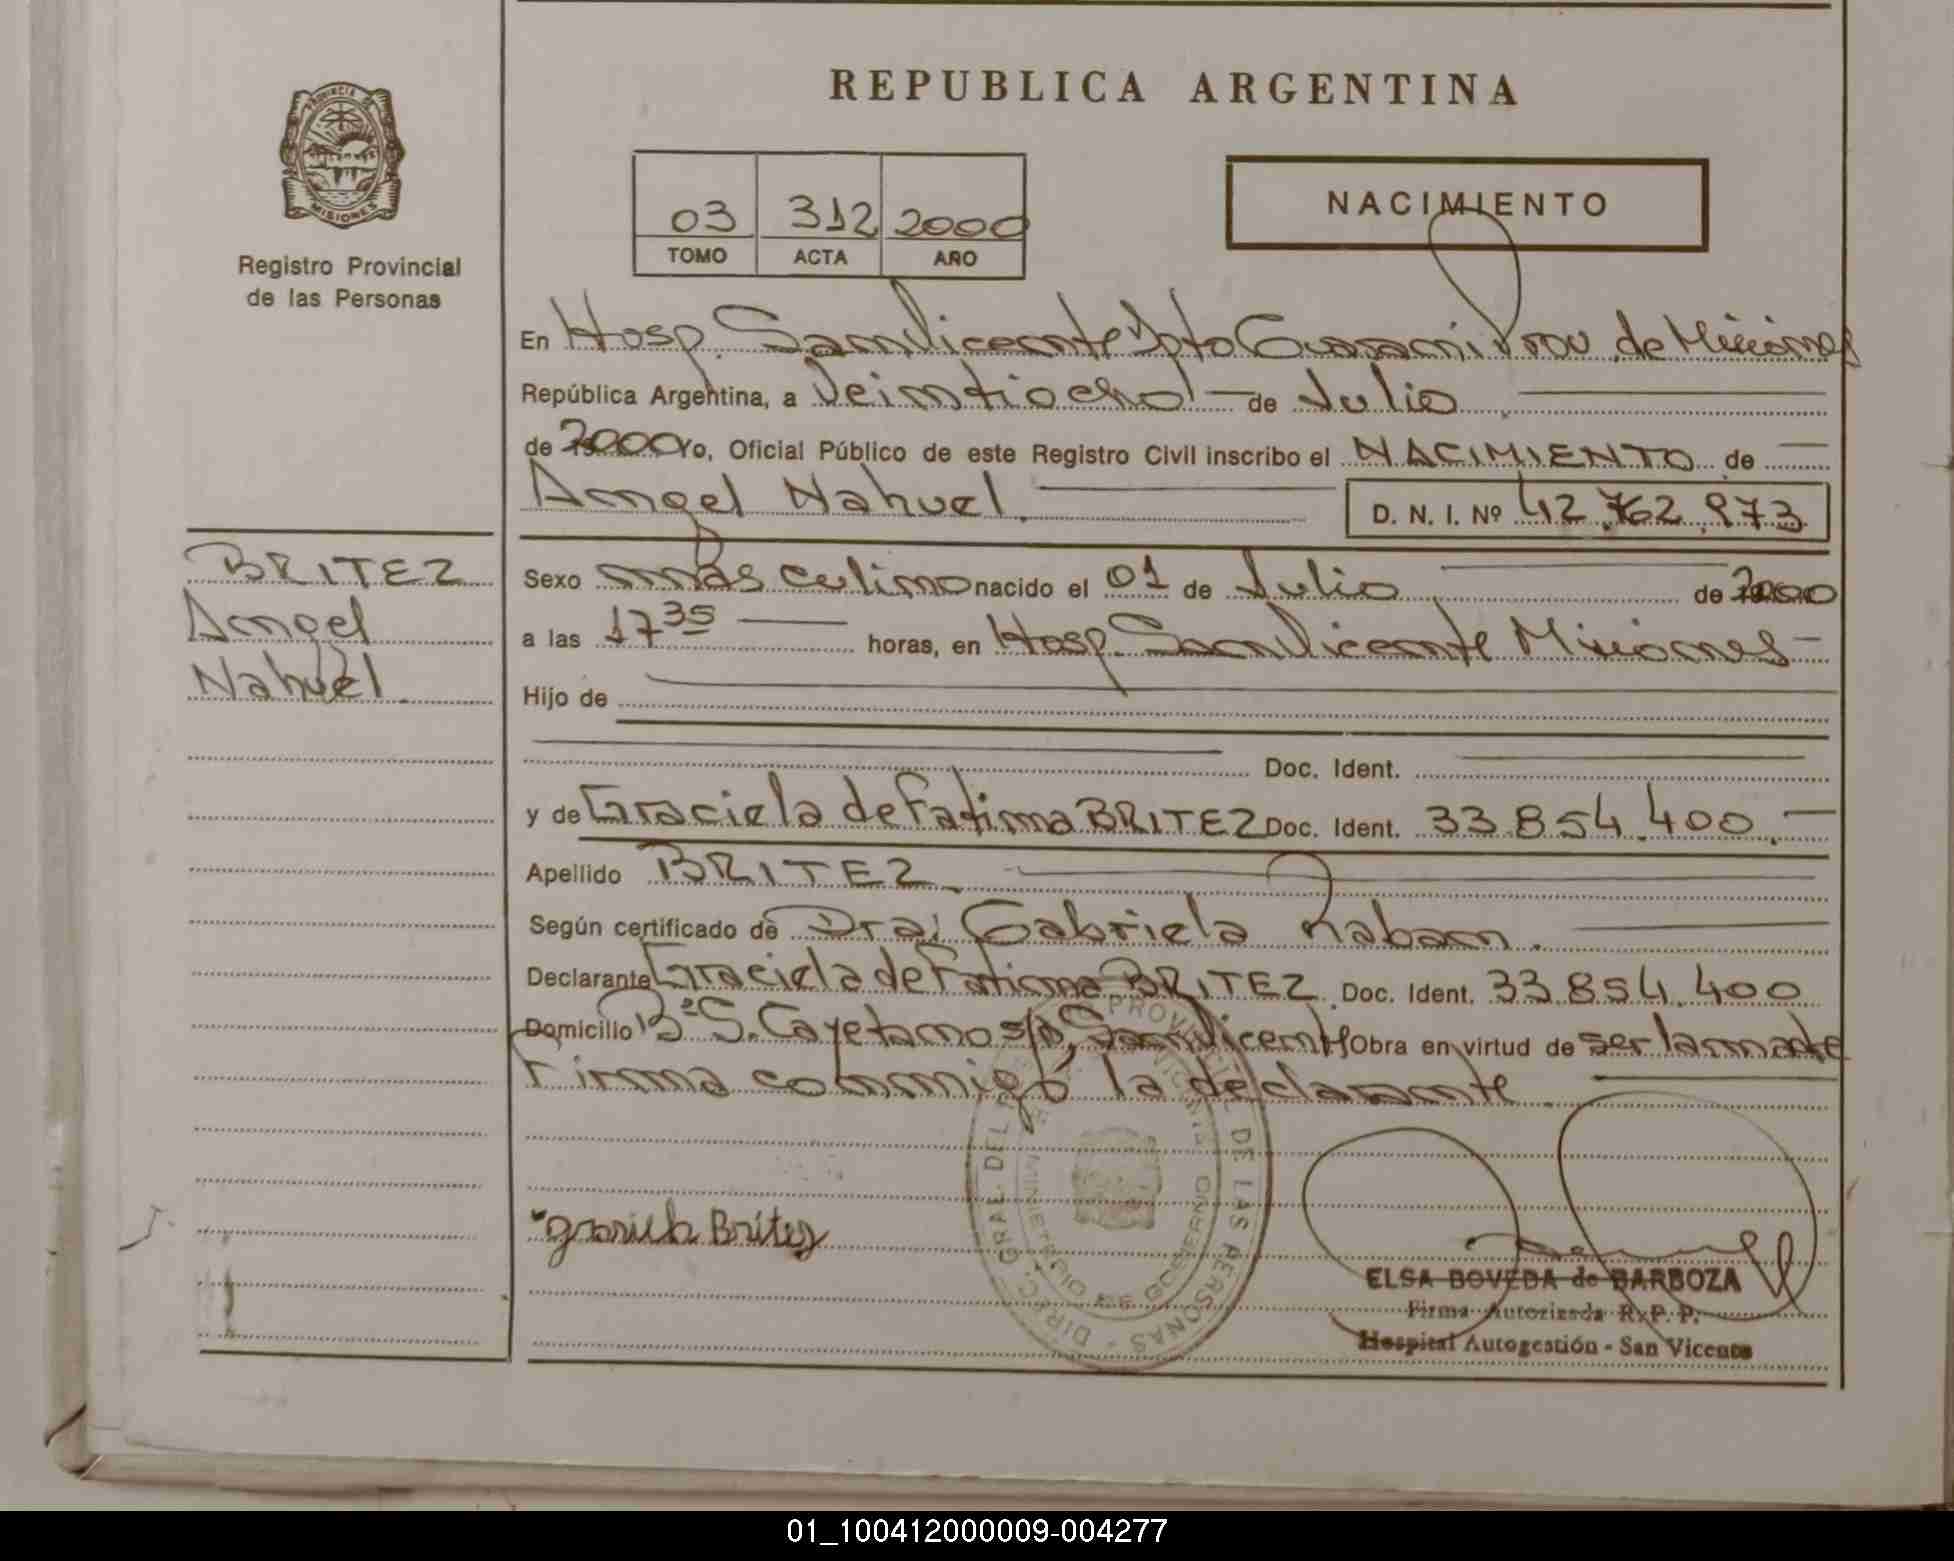 REPUBLICA ARGENTINA
PROVINCIA DE
MISIONES
Registro Provincial
de las Personas
03 312 2000
TOMO ACTA AÑO
NACIMIENTO
En Hosp. San Vicente Dpto Guaraní Prov. de Misiones
República Argentina, a Veintiocho de Julio
de 2000 Yo, Oficial Público de este Registro Civil inscribo el NACIMIENTO de
Angel Nahuel. D. N. I. Nº 42.762.973
BRITEZ
Angel
Nahuel.
Sexo masculino nacido el 01 de Julio de 2000
a las 17 35 horas, en Hosp. San Vicente Misiones
Hijo de
Doc. Ident.
y de Graciela de Fatima BRITEZ Doc. Ident. 33.854.400.
Apellido BRITEZ.
Según certificado de Dra: Gabriela Raban.
Declarante Graciela de Fatima BRITEZ. Doc. Ident. 33.854.400
Domicilio Bº S. Cayetano s/n, San Vicente Obra en virtud de ser la madre
Firma conmigo la declarante.
DIREC. GRAL. DEL PROVINCIAL DE LAS PERSONAS
MINISTERIO DE GOBIERNO
Graciela Britez
ELSA BOVEDA de BARBOZA
Firma Autorizada R. P. P.
Hospital Autogestión - San Vicente
01_100412000009-004277